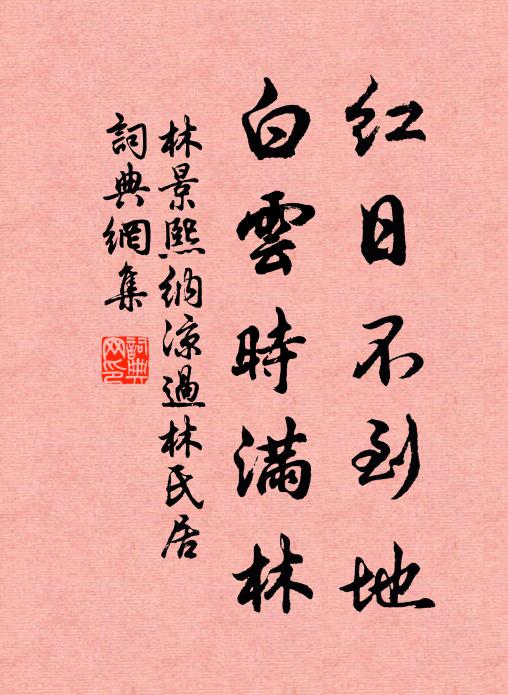 紅日不到地
白雲時滿林
林景熙納涼過林氏居
詞典網集
詞典網印